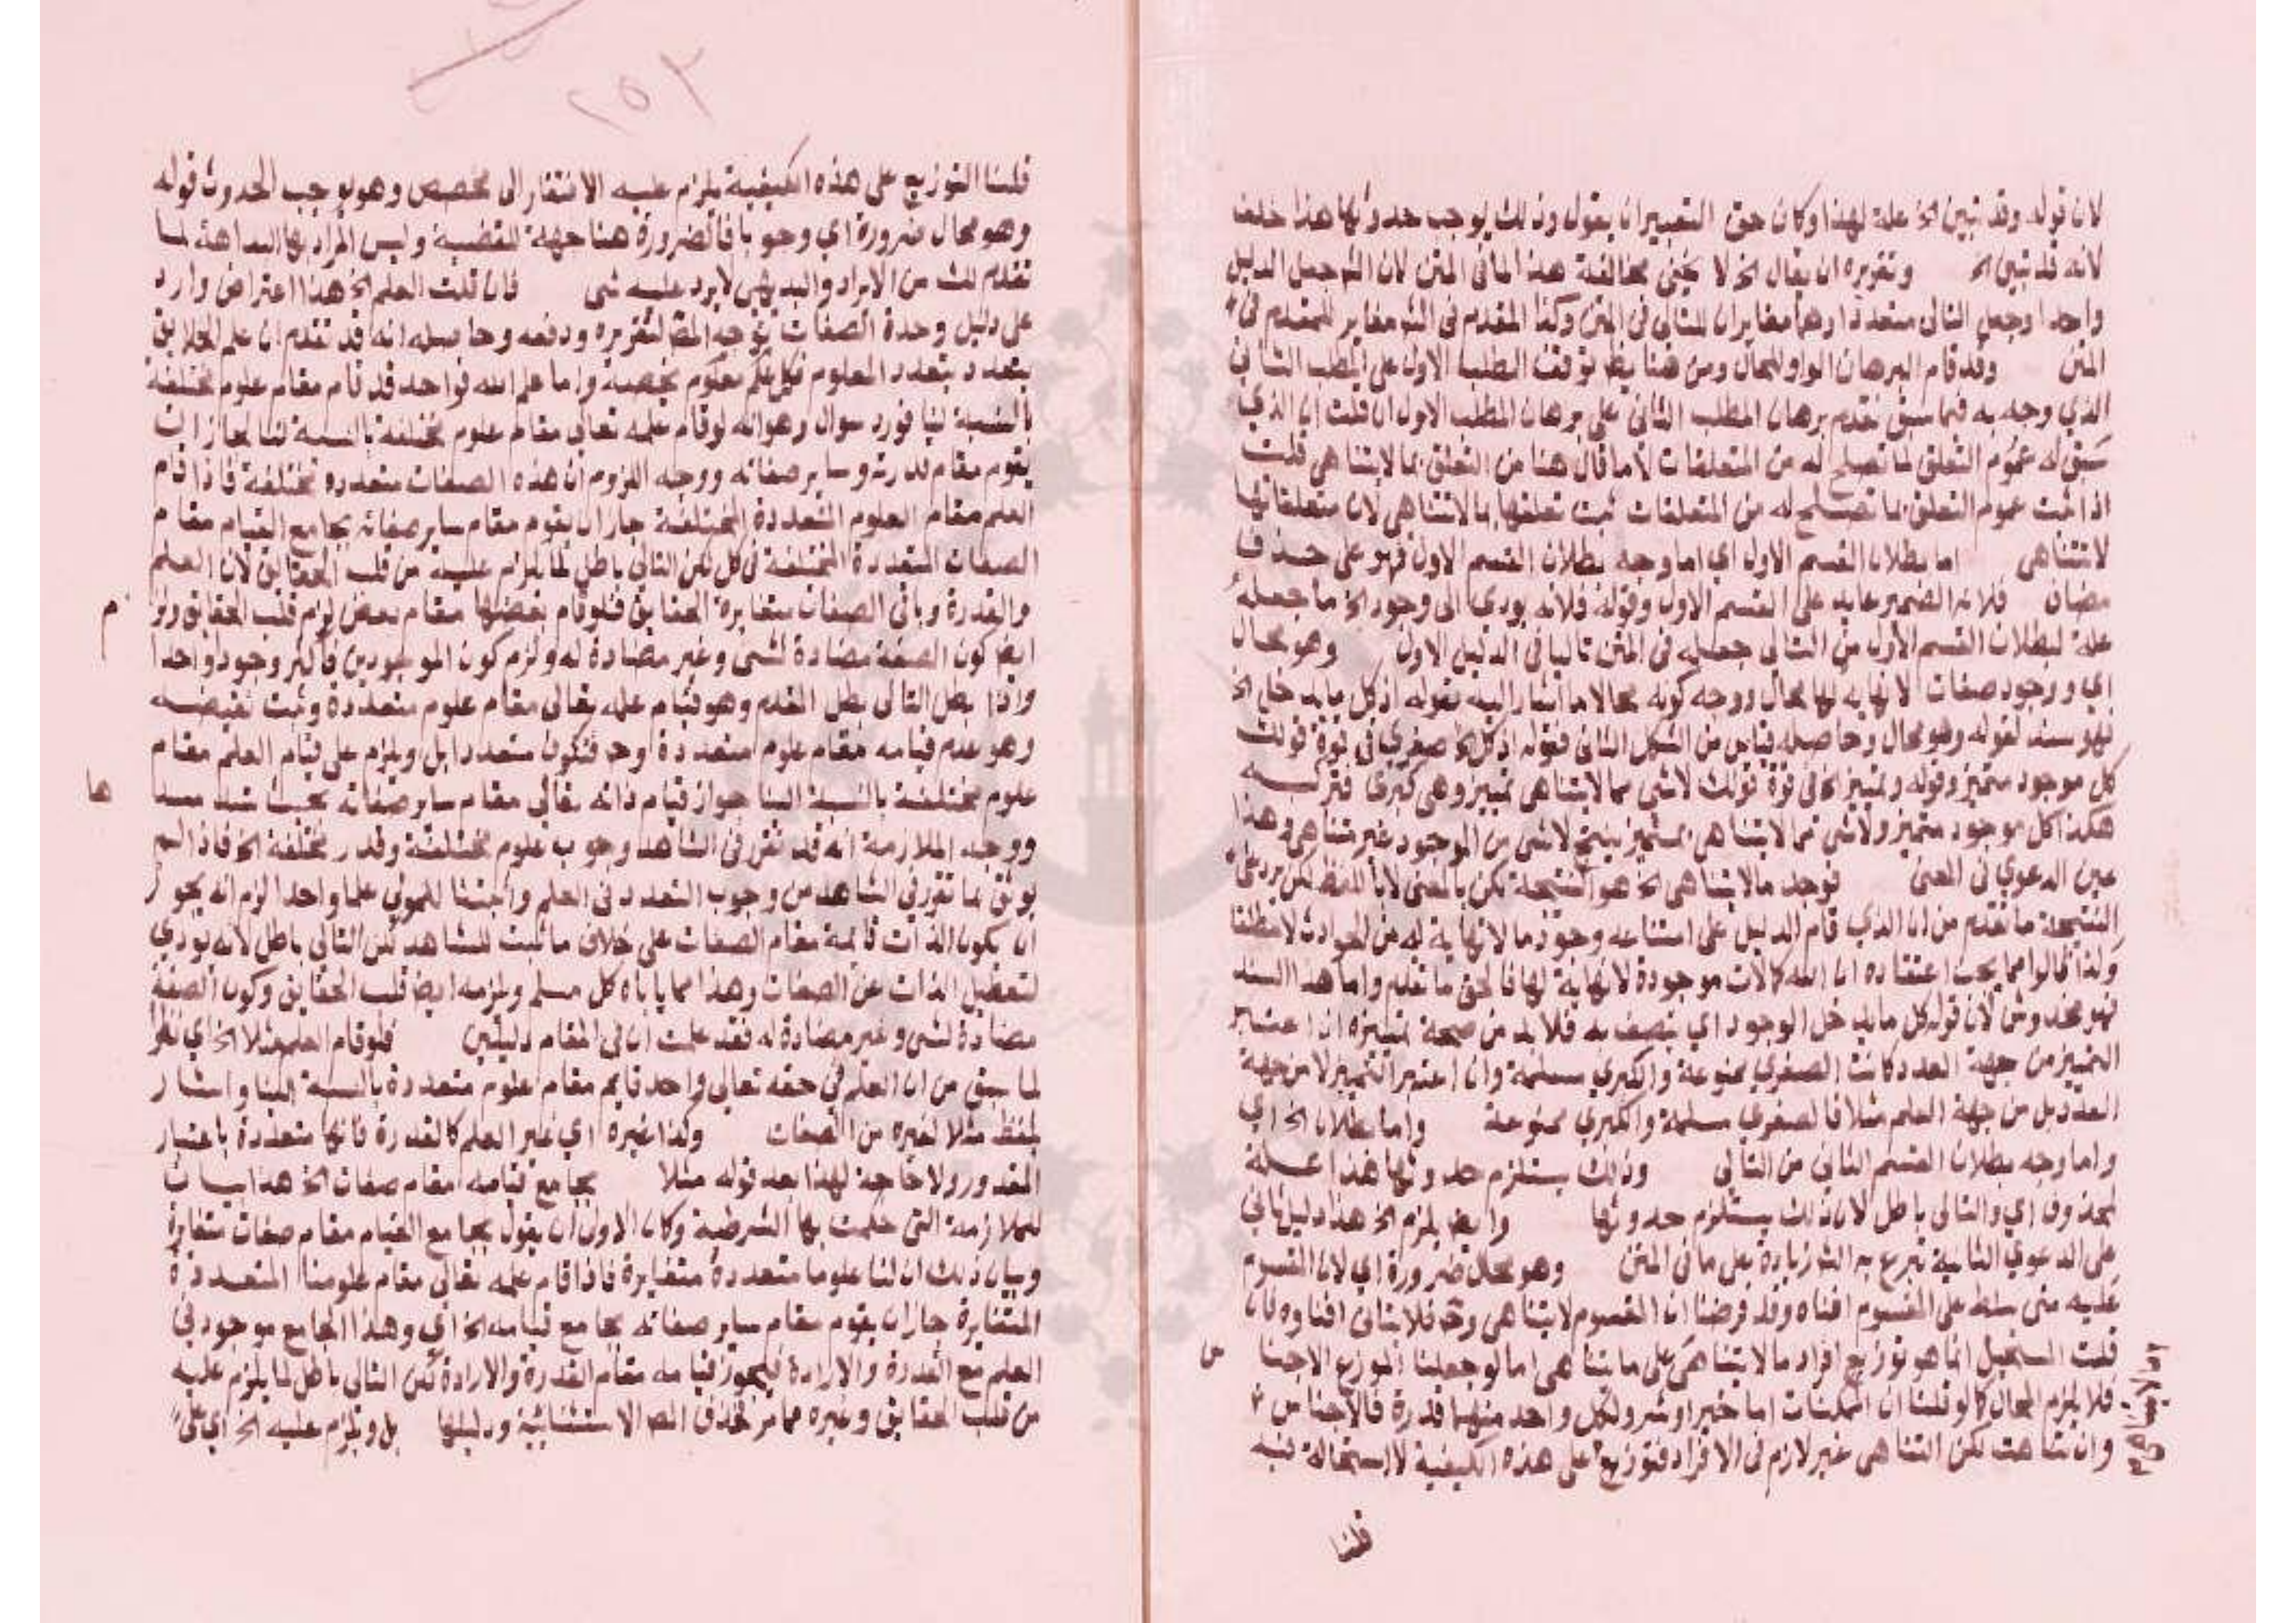 لان قوله وقد تبين الخ علة لهذا وكان حق التعبير ان يقول وذلك يوجب حدوثها هذا خلف
لانه قد تبين الخ وتقريره ان يقال الخ لا يخفى مخالفة هذا لما في المتن لان الش جعل الدليل
واحدا وجعل التالي متعددا وهما مغايران للتالي في المتن وكذا المقدم في الش مغاير للمقدم في
المتن وقد قام البرهان الواو للحال ومن هنا يظهر توقف المطلب الاول على المطلب الثاني
الذي وجه به فيما سبق تقدم برهان المطلب الثاني على برهان المطلب الاول ان قلت ان الذي
سبق له عموم التعلق لما تصلح له من المتعلقات لا ما قال هنا من التعلق بما لا يتناهى قلت
اذا ثبت عموم التعلق بما تصلح له من المتعلقات ثبت تعلقها بما لا يتناهى لان متعلقاتها
لا تتناهى اما بطلان القسم الاول اي اما وجه بطلان القسم الاول فهو على حذف
مضاف فلانه الضمير عايد على القسم الاول وقوله فلانه يودي الى وجود الخ ما جعله
علة لبطلان القسم الاول من التالي جعله في المتن تاليا في الدليل الاول وهو محال
اي ووجود صفات لا نهاية لها محال ووجه كونه محالا ما اشار اليه بقوله اذ كل ما يدخل الخ
فهو سند لقوله وهو محال وحاصله قياس من الشكل الثاني فقوله اذ كل الخ صغرى في قوة قولك
كل موجود متميز وقوله وتمييز الخ في قوة قولك لا شي مما لا يتناهى بمتميز وهي كبرى فتركيبه
هكذا كل موجود متميز ولا شي مما لا يتناهى بمتميز ينتج لا شي من الموجود غير متناهي وهذا
عين الدعوي في المعنى فوجد ما لا يتناهى الخ هو النتيجة لكن بالمعنى لا باللفظ لكن يرد على
النتيجة ما تقدم من ان الذي قام الدليل على امتناعه وجود ما لا نهاية له من الحوادث لا مطلقا
ولذا قالوا مما يجب اعتقاده ان لله كمالات موجودة لا نهاية لها فالحق ما تقدم واما هذا السند
فهو مخدوش لان قوله كل ما يدخل الوجود اي يتصف به فلا بد من صحة تمييزه ان اعتبر
التمييز من جهة العدد كانت الصغري ممنوعة والكبري مسلمة وان اعتبر التمييز لا من جهة
العدد بل من جهة العلم مثلا فالصغري مسلمة والكبري ممنوعة واما بطلان الخ اي
واما وجه بطلان القسم الثاني من التالي وذلك يستلزم حدوثها هذا علة
لمحذوف اي والتالي باطل لان ذلك يستلزم حدوثها وايض يلزم الخ هذا دليل ثاني
على الدعوي الثانية تبرع به الش زيادة على ما في المتن وهو محال ضرورة اي لان المقسوم
عليه متى سلط على المقسوم افناه وقد فرضنا ان المقسوم لا يتناهى وح فلا يتاتى افناوه فان
قلت المستحيل انما هو توزيع افراد ما لا يتناهى على ما يتناهى اما لو جعلنا الموزع الاجنا
س
فلا يلزم المحال كما لو قلنا ان الممكنات اما خير او شر ولكل واحد منهما قدرة فالاجناس
وان تناهت لكن التناهى غير لازم في الافراد فتوزيع على هذه الكيفية لا استحالة فيه
قلنا
٢٥٢
قلنا التوزيع على هذه الكيفية يلزم عليه الافتقار الى مخصص وهو يوجب الحدوث قوله
وهو محال ضرورة اي وجوبا فالضرورة هنا جهة للقضية وليس المراد بها البداهة لما
تقدم لك من الايراد والبديهي لا يرد عليه شي فان قلت العلم الخ هذا اعتراض وارد
على دليل وحدة الصفات توجه المص لتقريره ودفعه وحاصله انه قد تقدم ان علم الخلايق
يتعدد بتعدد المعلوم فكل علم معلوم يخصه واما علم الله فواحد قد قام مقام علوم مختلفة
بالنسبة لنا فورد سوال وهو انه لو قام علمه تعالى مقام علوم مختلفة بالنسبة لنا لجاز ان
يقوم مقام قدرته وساير صفاته ووجه اللزوم ان هذه الصفات متعددة مختلفة فاذا قام
العلم مقام العلوم المتعددة المختلفة جاز ان يقوم مقام ساير صفاته بجامع القيام مقام
الصفات المتعددة المختلفة في كل لكن التالي باطل لما يلزم عليه من قلب الحقايق لان العلم
والقدرة وباقي الصفات متغايرة الحقايق فلو قام بعضها مقام بعض لزم قلب الحقايق ولز
م
ايض كون الصفة مضادة لشي وغير مضادة له ولزم كون الموجودين فاكثر وجودا واحدا
واذا بطل التالي بطل المقدم وهو قيام علمه تعالى مقام علوم متعددة وثبت نقيضه
وهو عدم قيامه مقام علوم متعددة وح فيكون متعددا بل ويلزم على قيام العلم مقام
علوم مختلفة بالنسبة الينا جواز قيام ذاته تعالى مقام ساير صفاته بحيث تسد مسد
ها
ووجه الملازمة انه قد تقرر في الشاهد وجوب علوم مختلفة وقدر مختلفة الخ فاذا لم
يوثق بما تقرر في الشاهد من وجوب التعدد في العلم واثبتنا للمولى علما واحدا لزم انه يجوز
ان يكون الذات قائمة مقام الصفات على خلاف ما ثبت للشاهد لكن التالي باطل لانه يودي
لتعطيل الذات عن الصفات وهذا مما ياباه كل مسلم ويلزمه ايض قلب الحقايق وكون الصفة
مضادة لشي وغير مضادة له فقد علمت ان في المقام دليلين فلو قام العلم مثلا الخ اي نظرا
لما سبق من ان العلم في حقه تعالى واحد قايم مقام علوم متعددة بالنسبة الينا واشار
بلفظ مثلا لغيره من الصفات وكذا غيره اي غير العلم كالقدرة فانها متعددة باعتبار
المقدور ولا حاجة لهذا بعد قوله مثلا بجامع قيامه مقام صفات الخ هذا بيان
للملازمة التي حكمت بها الشرطية وكان الاولى ان يقول بجامع القيام مقام صفات متغايرة
وبيان ذلك ان لنا علوما متعددة متغايرة فاذا قام علمه تعالى مقام علومنا المتعددة
المتغايرة جاز ان يقوم مقام ساير صفاته بجامع قيامه الخ اي وهذا الجامع موجود في
العلم مع القدرة والارادة فليجوز قيامه مقام القدرة والارادة لكن التالي باطل لما يلزم عليه
من قلب الحقايق وغيره مما مر فحذف المص الاستثنائية ودليلها بل ويلزم عليه الخ اي على